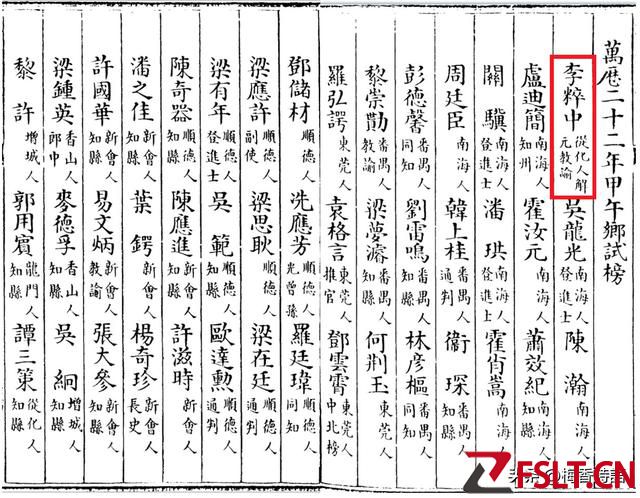 萬曆二十二年甲午鄉試榜
李粹中 從化人解元教諭 吳龍光 南海人登進士 陳瀚 南海人
盧迪簡 南海人知州 霍汝元 南海人 蕭效紀 南海人知縣
關驥 南海人登進士 潘珙 南海人登進士 霍肖嵩 南海人
周廷臣 南海人 韓上桂 番禺人通判 衞琛 番禺人知縣
彭德馨 番禺人同知 劉雷鳴 番禺人知縣 林彥樞 番禺人知縣
黎崇勛 番禺人教諭 梁夢濬 番禺人知縣 何荆玉 番禺人
羅弘諤 東莞人 袁格言 東莞人推官 鄧雲霄 東莞人中北榜
鄧儲材 順德人 冼應芳 順德人光曾孫 羅廷瑋 順德人同知
梁應許 順德人副使 梁思耿 順德人 梁在廷 順德人
梁有年 順德人登進士 吳範 順德人知縣 歐達勳 順德人通判
陳奇器 新會人知縣 陳應進 新會人知縣 許滋時 新會人
潘之佳 新會人知縣 葉鍔 新會人 楊奇珍 新會人長史
許國華 新會人知縣 易文炳 新會人教諭 張大參 新會人知縣
梁鍾英 香山人郎中 麥德孚 香山人知縣 吳絅 增城人知縣
黎許 增城人 郭用賓 龍門人知縣 譚三策 從化人知縣
FSLT.CN